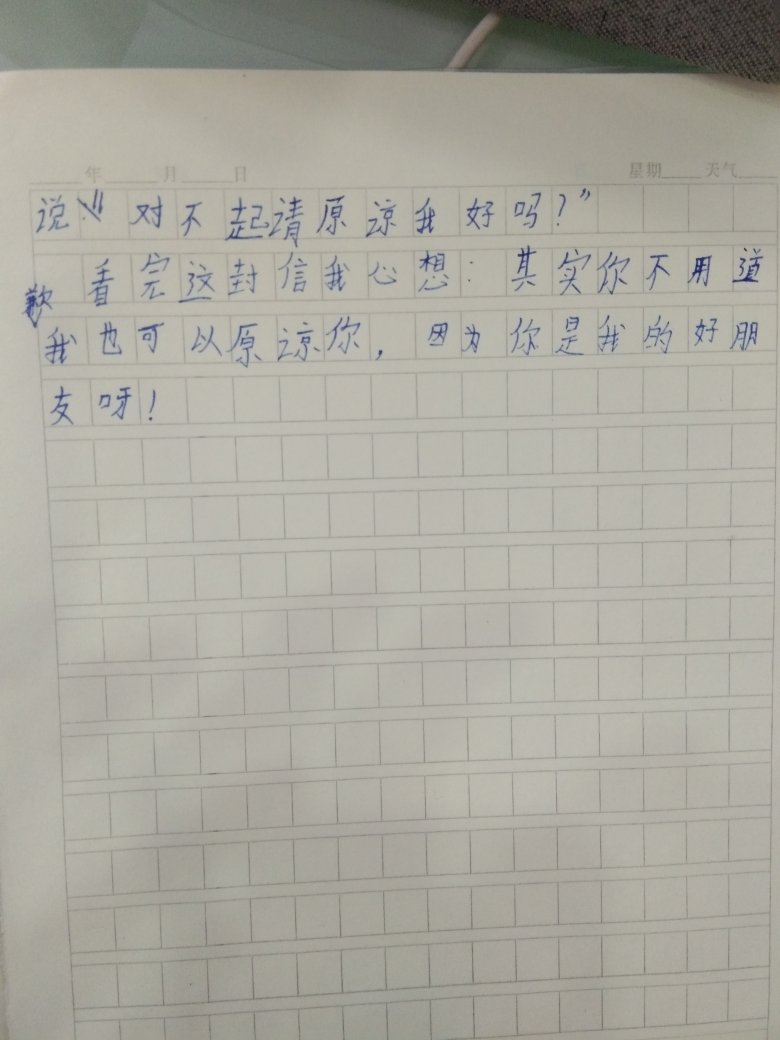 年 月 日 星期 天气
说:“对不起请原谅我好吗?”
看完这封信我心想:其实你不用道
歉我也可以原谅你,因为你是我的好朋
友呀!